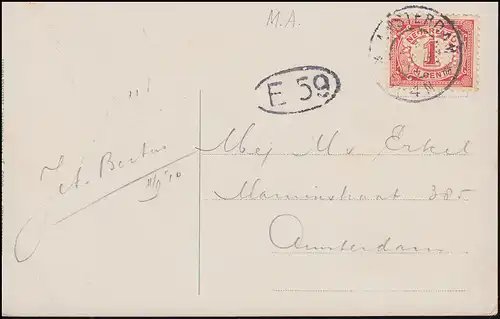 M.A.
AMSTERDAM
NEDERLAND
1
CENT
4 N
E 59
Jet. Bertus
11/9 '10
Mej M. v. Erkel
Marnixstraat 385
Amsterdam